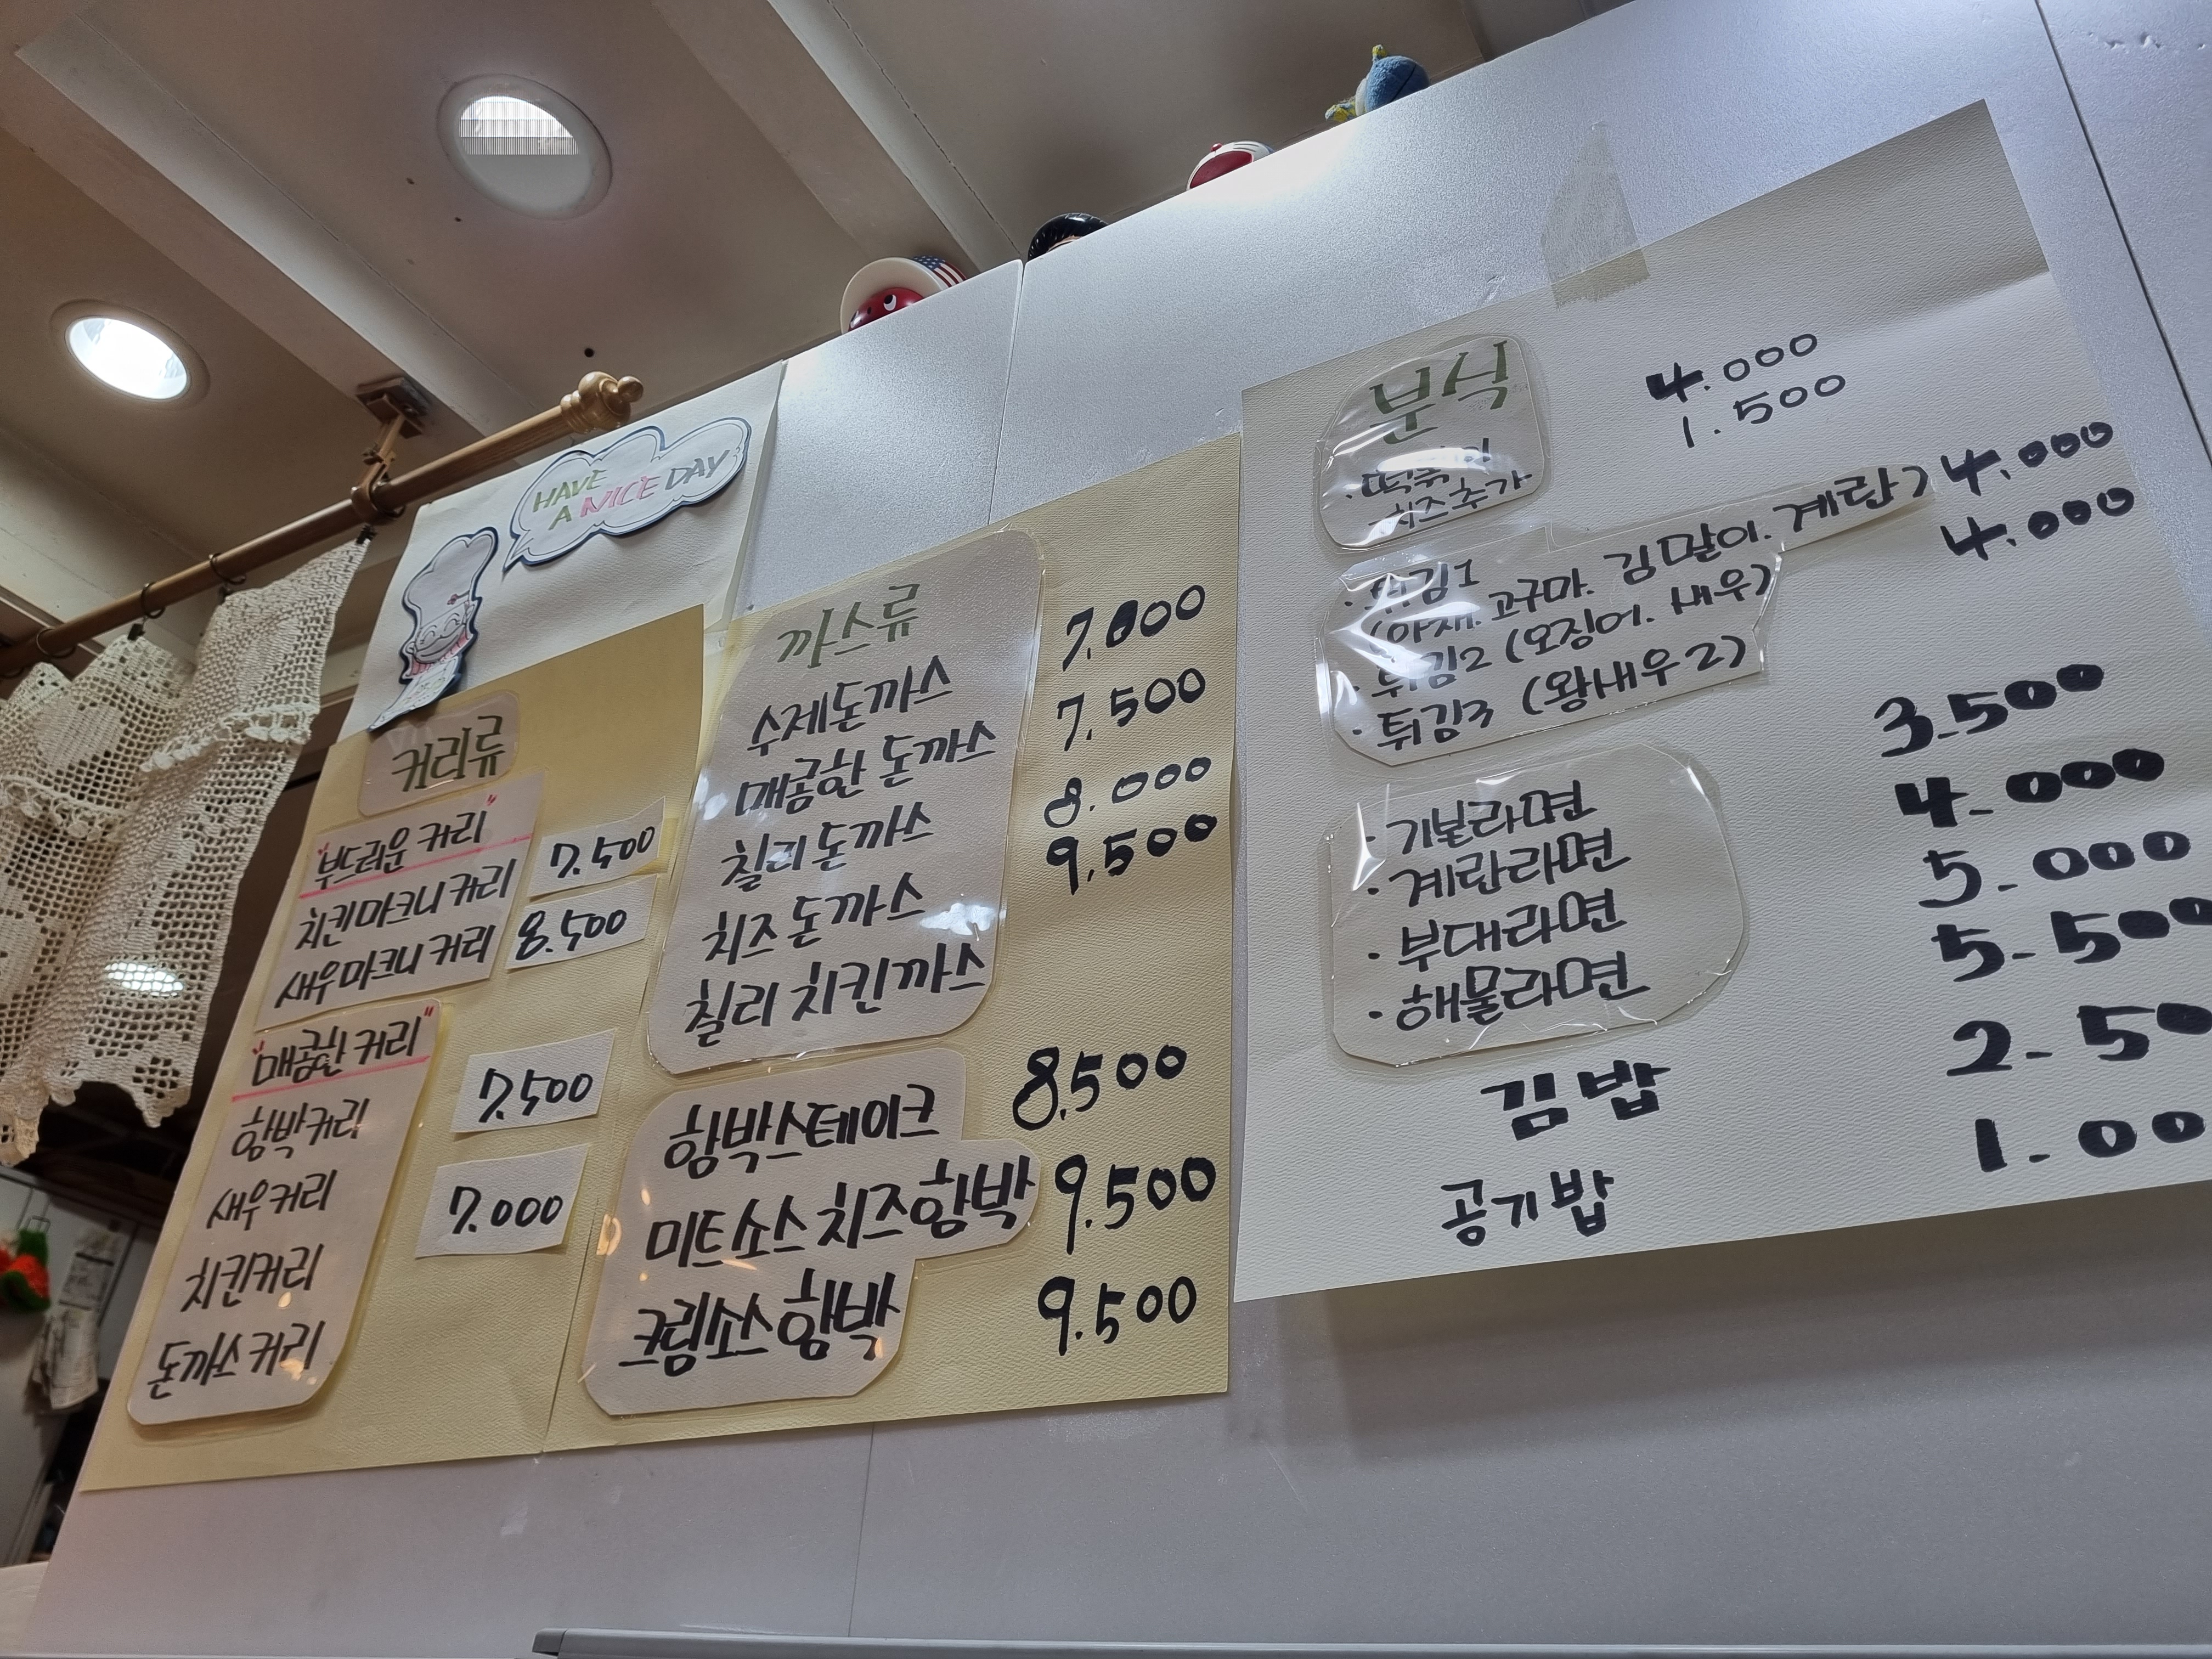 HAVE
A NICE DAY
커리류
"부드러운 커리"
치킨마크니 커리 7.500
새우마크니 커리 8.500
"매콤한 커리"
함박커리 7.500
새우커리
치킨커리 7.000
돈까스 커리
까스류
수제돈까스 7.000
매콤한 돈까스 7.500
칠리돈까스 8.000
치즈돈까스 9,500
칠리 치킨까스
함박스테이크 8,500
미트소스 치즈함박 9.500
크림소스함박 9.500
분식
· 떡볶이 4.000
-치즈추가 1.500
· 튀김1
(야채. 고구마. 김말이. 계란) 4.000
· 튀김2 (오징어. 새우) 4.000
· 튀김3 (왕새우2)
· 기본라면 3.500
· 계란라면 4-000
· 부대라면 5-000
· 해물라면 5-500
김밥 2-50
공기밥 1-00